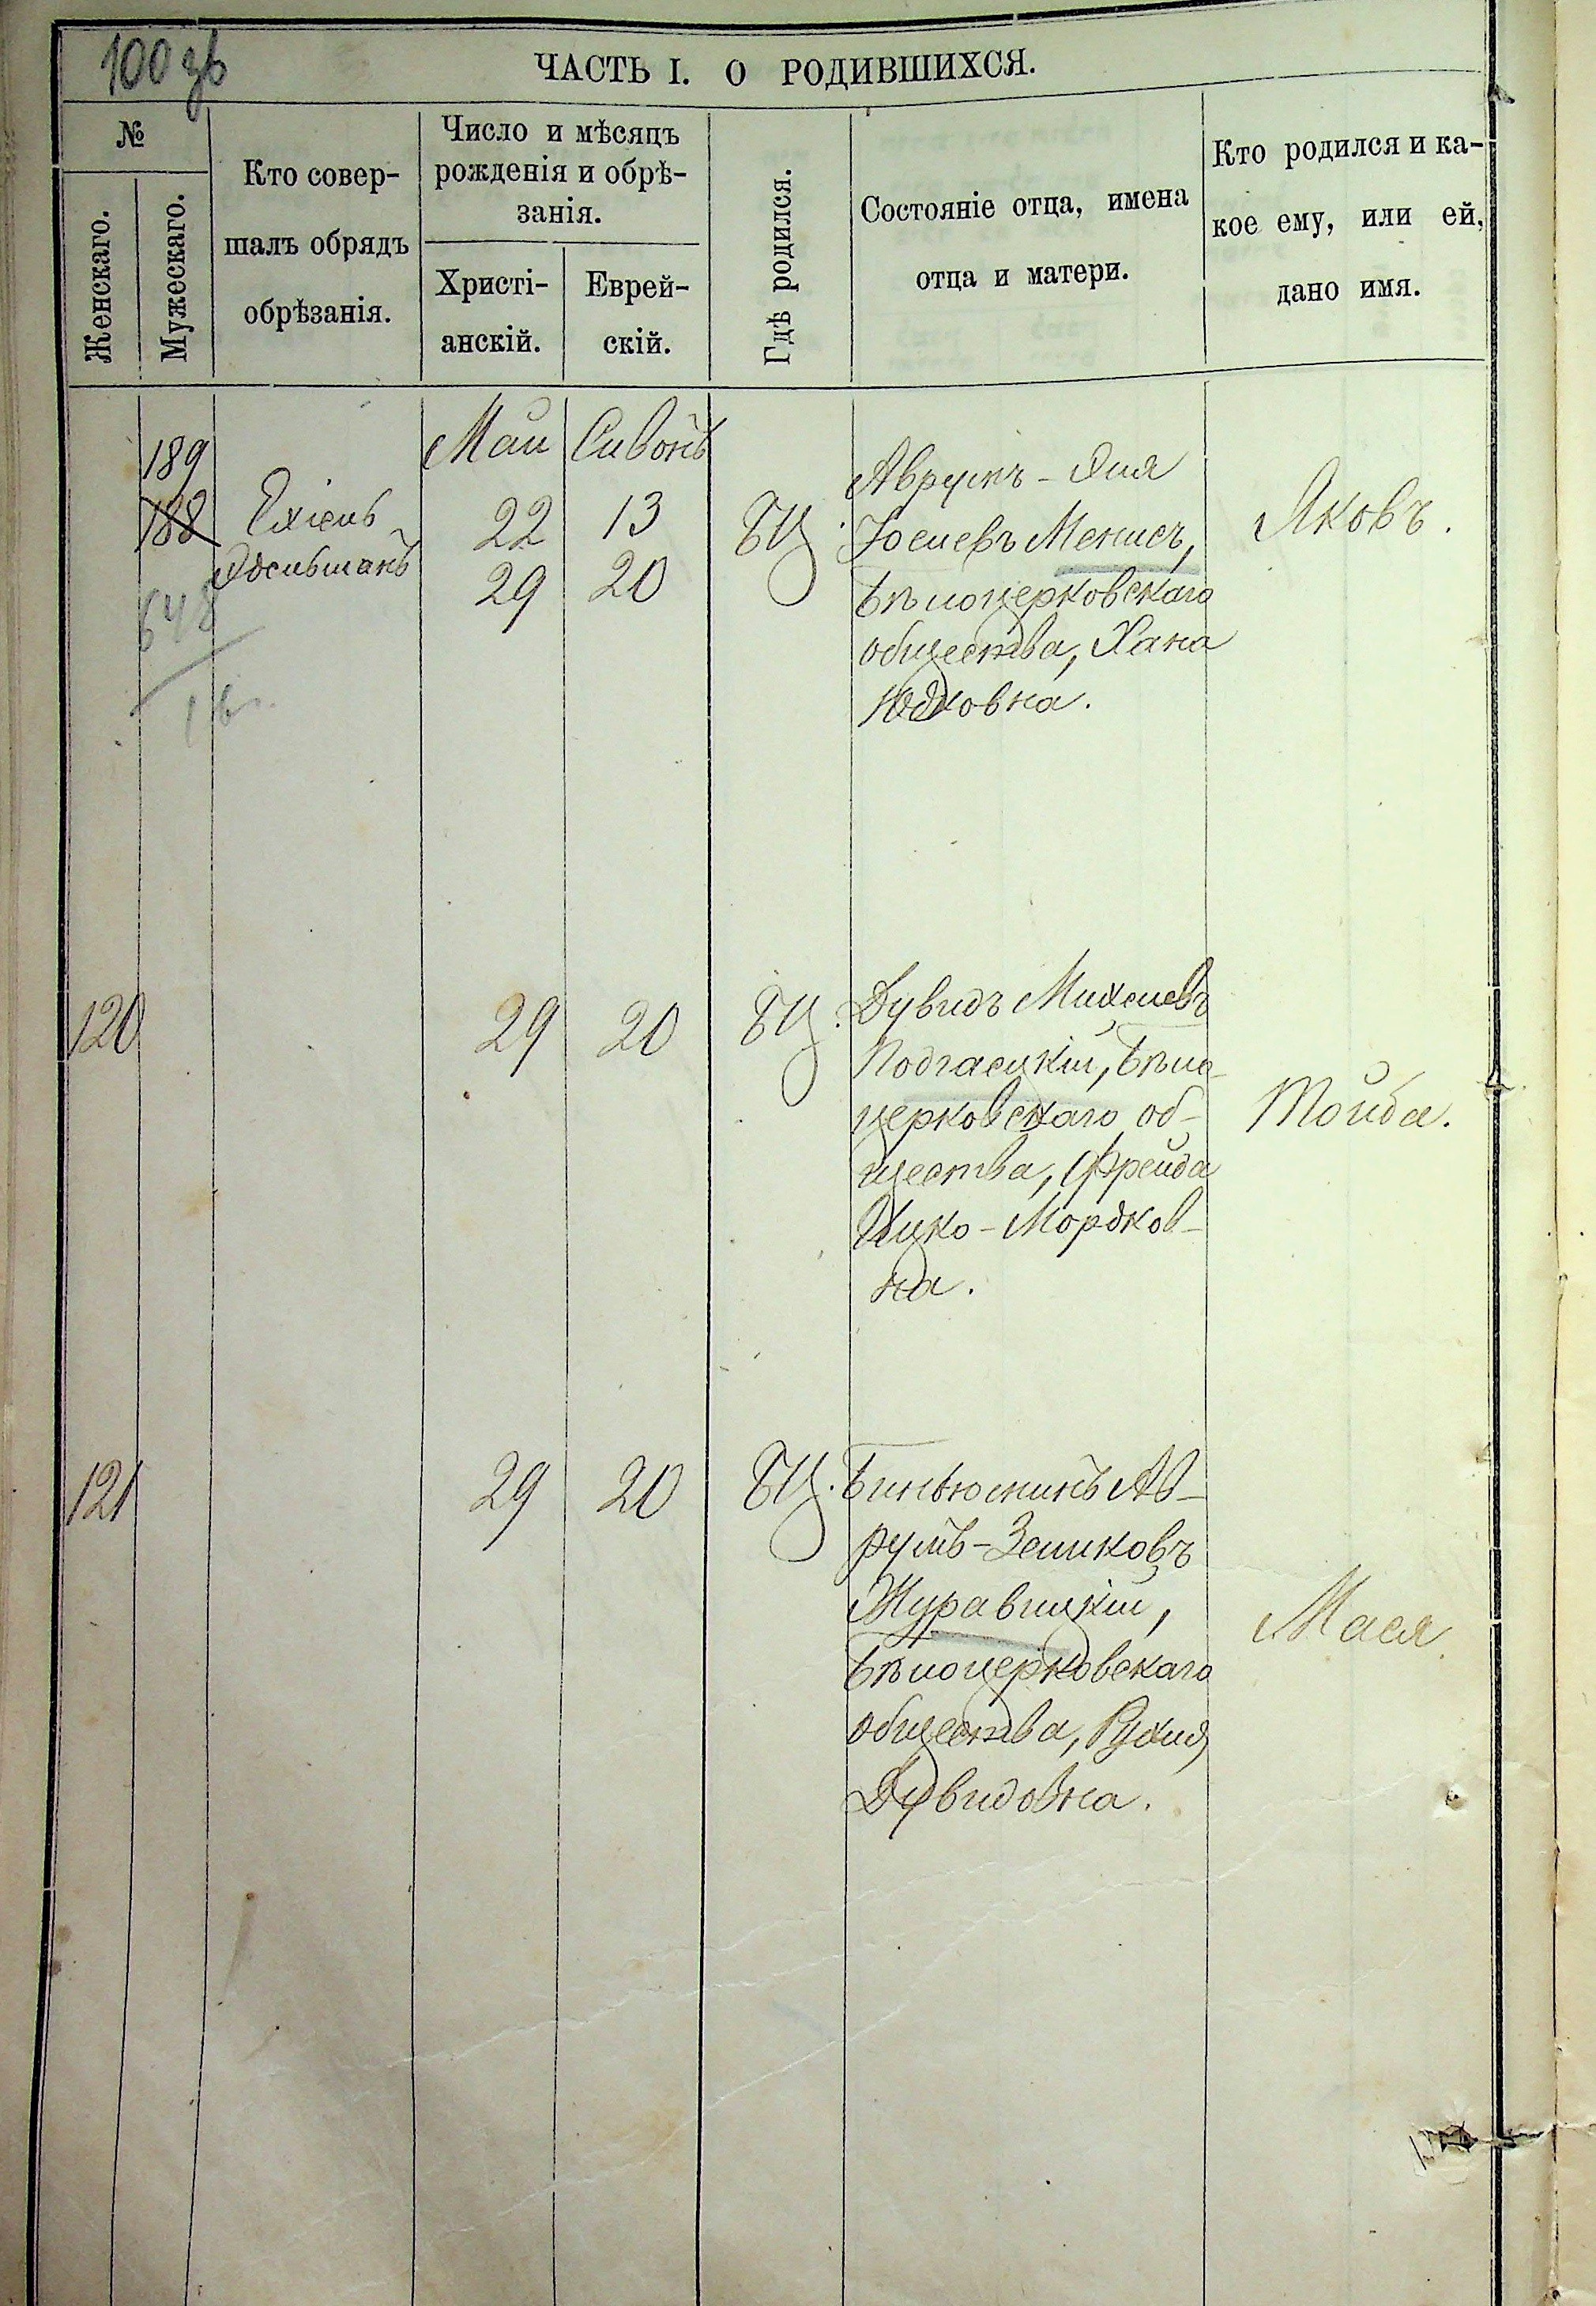 100 зв
ЧАСТЬ I. О РОДИВШИХСЯ.
№
Женскаго.
Мужескаго.
Кто совер-
шалъ обрядъ
обрѣзанія.
Число и мѣсяцъ
рожденія и обрѣ-
занія.
Христі-
анскій.
Еврей-
скій.
Гдѣ родился.
Состояніе отца, имена
отца и матери.
Кто родился и ка-
кое ему, или ей,
дано имя.
Май Сивонъ
189
188
Ехіель
22 13
29 20
БЦ.
Аврумъ-Эля
Іоселевъ Менисъ,
Бѣлоцерковскаго
общества, Хана
Юдковна.
Яковъ.
648
120
29 20
БЦ.
Дувидъ Михелевъ
Подгаецкій, Бѣло-
церковскаго об-
щества, Фрейда
Ицко-Мордков-
на.
Тойба.
121
29 20
БЦ.
Биньюминъ Ав-
румъ-Зеликовъ
Журавицкій,
Бѣлоцерковскаго
общества, Рухля
Дувидовна.
Мася